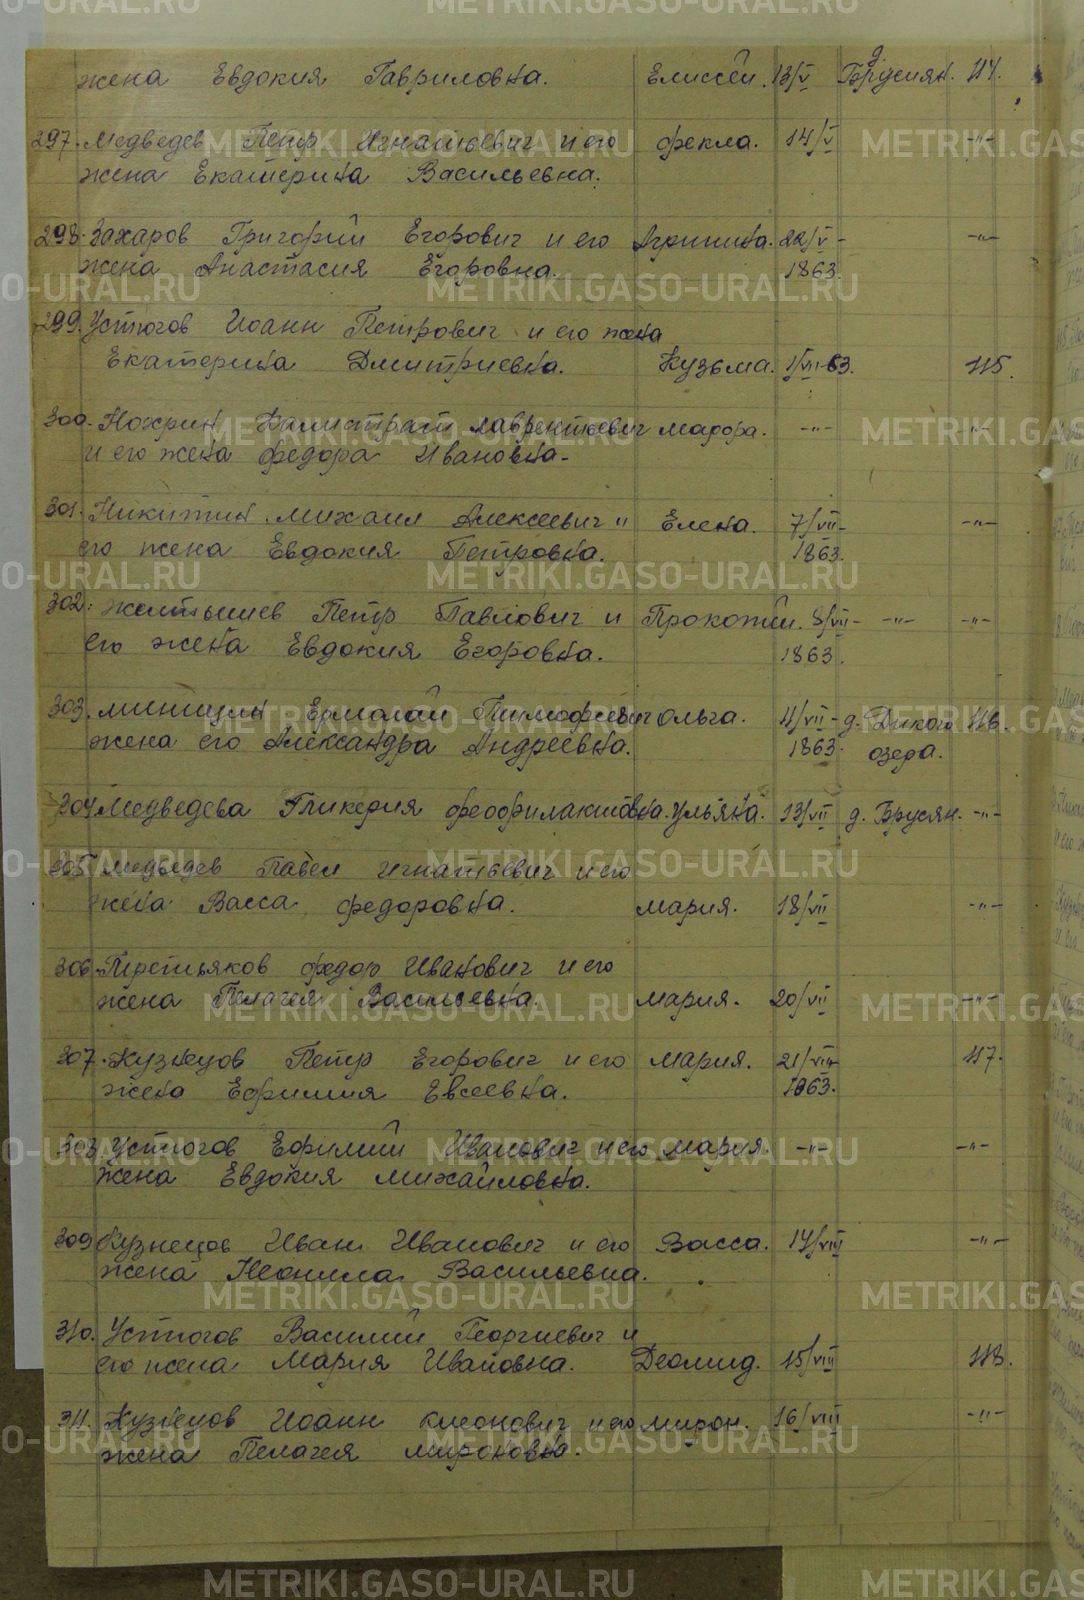 жена Евдокия Гавриловна. Елиссей. 13/V д. Брусян. 114.
297. Медведев Петр Игнатьевич и его фекла. 14/V -"-
жена Екатерина Васильевна.
298. Захаров Григорий Егорович и его Агрипина. 22/V- -"-
жена Анастасия Егоровна. 1863.
299. Устюгов Иоанн Петрович и его жена
Екатерина Дмитриевна. Кузьма. 1/VII-63. 115.
300. Нохрин Калистрат лаврентьевич мадора. -"- -"-
и его жена федора Ивановна-
301. Никитин михаил Алексеевич и Елена. 7/VII- -"-
его жена Евдокия Петровна. 1863.
302. Желтышев Петр Павлович и Прокопий. 8/VII- -"- -"-
его жена Евдокия Егоровна. 1863.
303. миницын Ермолай Тимофеевич ольга. 11/VII- д. Дикого 116.
жена его Александра Андреевна. 1863. озера.
304 Медведева Гликерия феофилактовна. Ульяна. 13/VII д. Брусян. -"-
305 медведев Павел игнатьевич и его
жена Васса федоровна. мария. 18/VII -"-
306. Третьяков федор Иванович и его
жена Пелагея Васильевна. мария. 20/VII -"-
307. Кузнецов Петр Егорович и его Мария. 21/VII- 117.
жена Ефимия Евсеевна. 1863.
308. Устюгов Ефимий Иванович и его мария. -"- -"-
жена Евдокия михайловна.
309 Кузнецов Иван Иванович и его Васса. 14/VIII -"-
жена Неонила Васильевна.
310. Устюгов Василий Георгиевич и
его жена Мария Ивановна. Деомид. 15/VIII 118.
311. Кузнецов Иоанн клеонович и его мирон. 16/VIII -"-
жена Пелагея мироновна.
METRIKI.GASO-URAL.RU